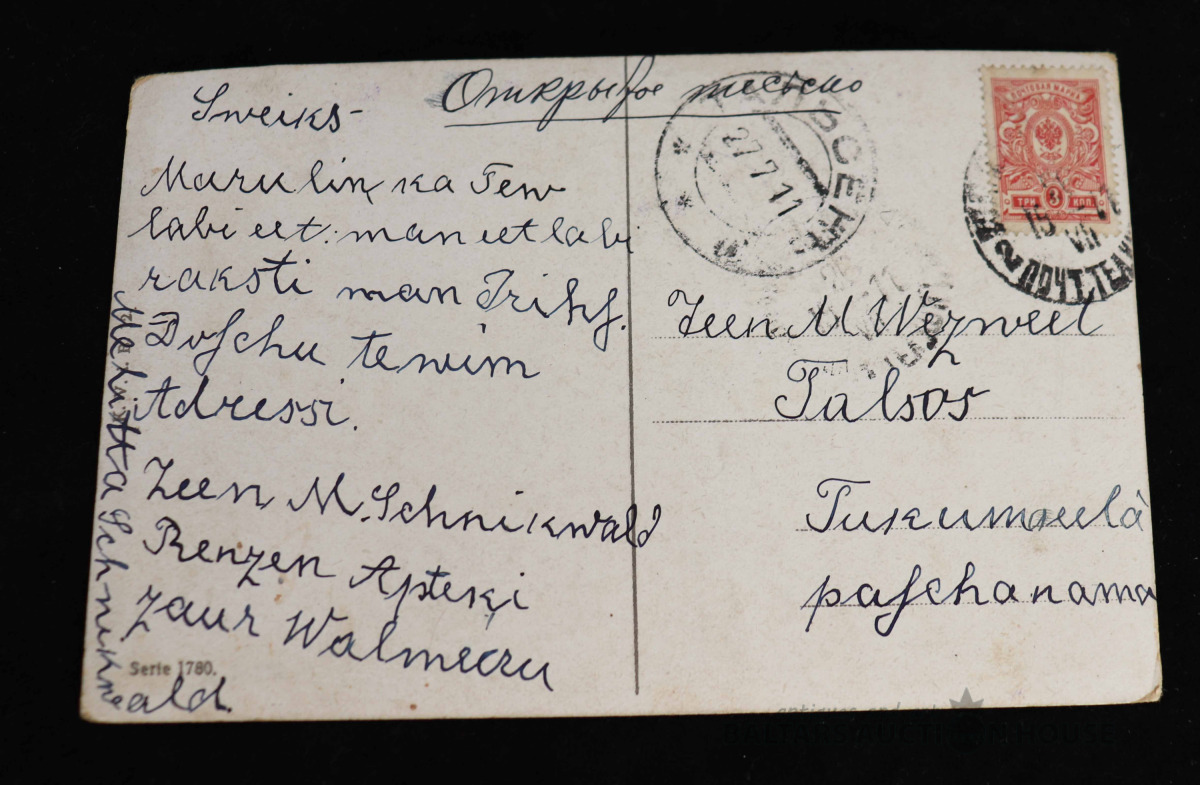 Открытое письмо
Sweiks-
Marulin, ka Tew
labi eet: man eet labi
raksti man Drihs.
Doschu tewim
Adressi.
Zeen M. Schnikwald
Renzen Apteķi
zaur Walmeeru
Schnikwald.
Serie 1780.
27.7.11
ПОЧТОВАЯ МАРКА
ТРИ 3 КОП
ПОЧТ.ТЕЛ
Zeen M Weznweel
Talsos
Tukumeelā
paschanama
BALTARS AUCTION HOUSE